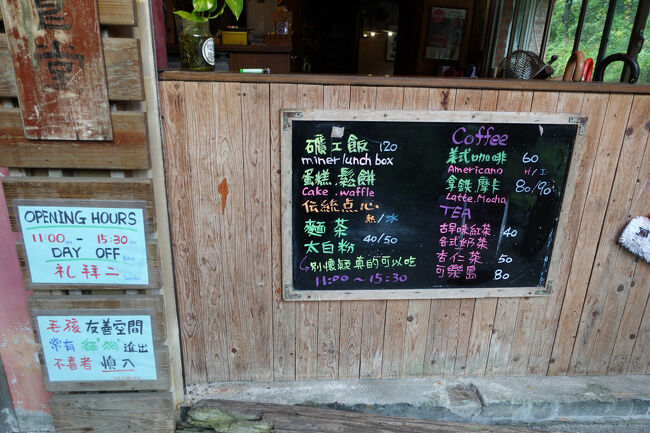 食堂
OPENING HOURS
11:00 ~ 15:30
DAY OFF
礼拜二
毛孩友善空間
常有貓狗進出
不喜者慎入
礦工飯 120
miner lunch box
蛋糕.鬆餅
Cake.waffle
伝統点心
熱/冰
麵茶
太白粉 40/50
別懷疑真的可以吃
11:00~15:30
Coffee
美式咖啡 60
Americano H/I
拿鐵.摩卡 80/90
Latte.Mocha
TEA
古早味紅茶 40
各式奶茶
杏仁茶 50
可樂島 80